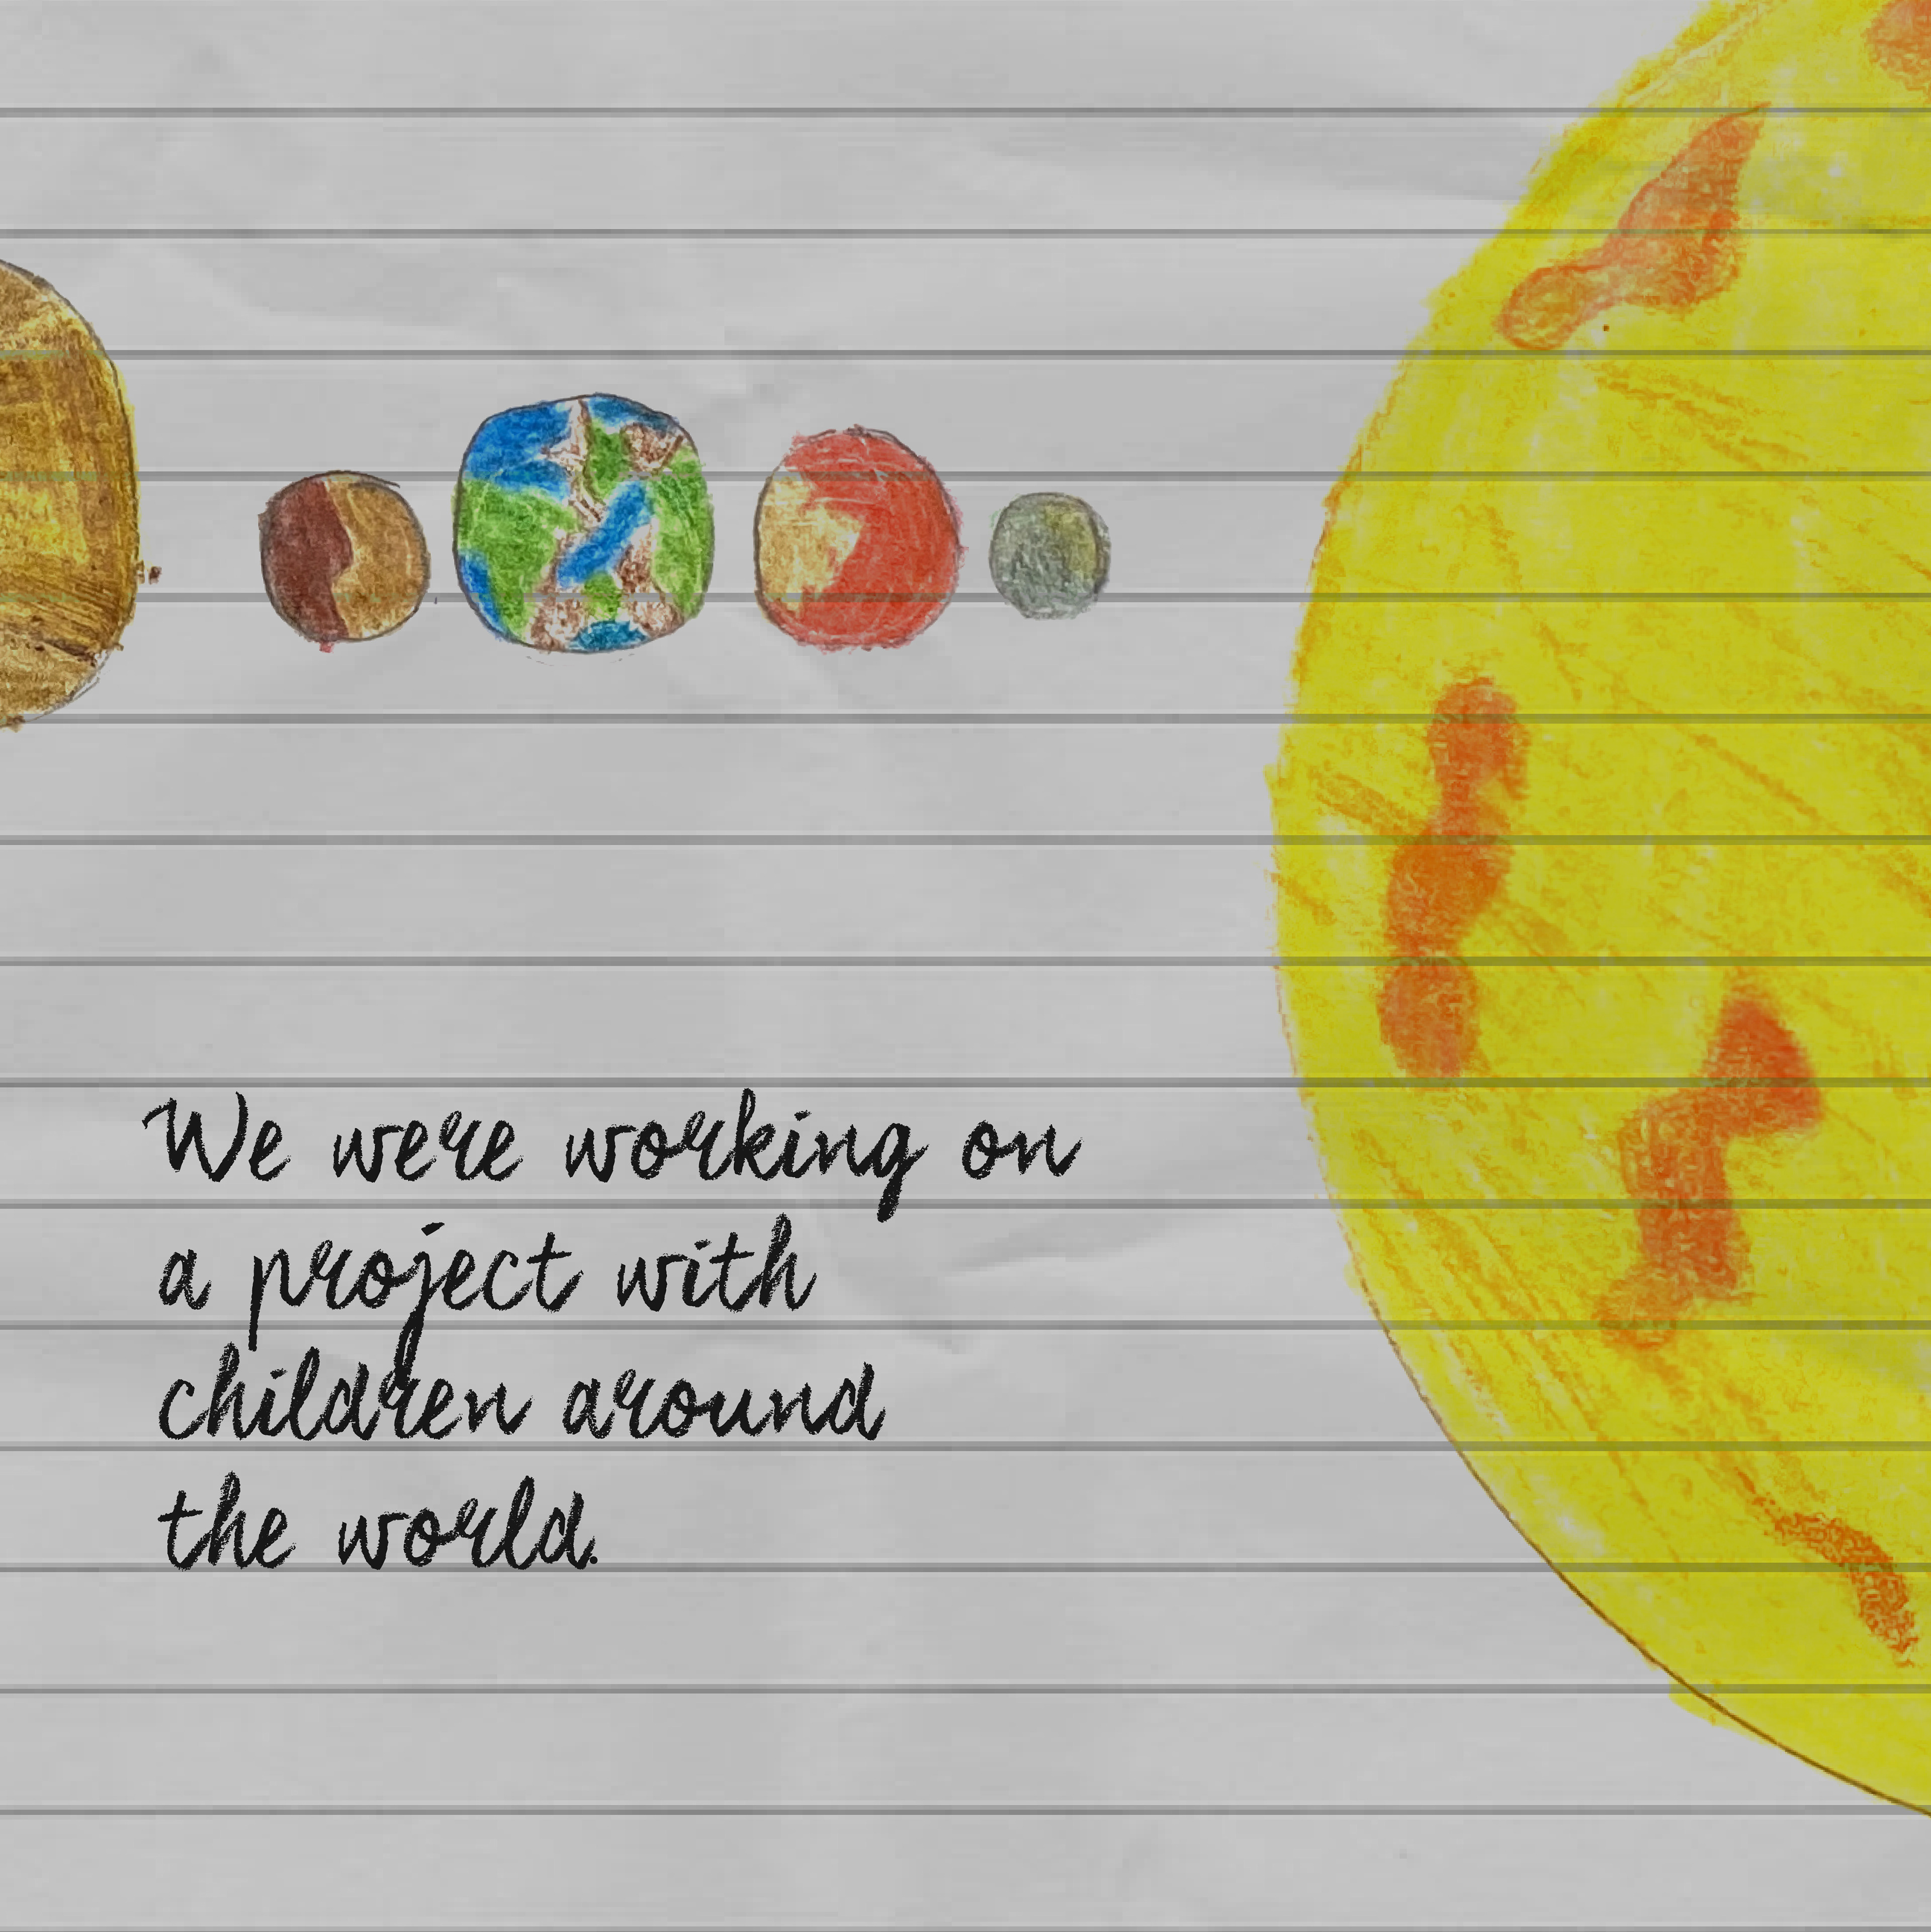 We were working on
a project with
children around
the world.